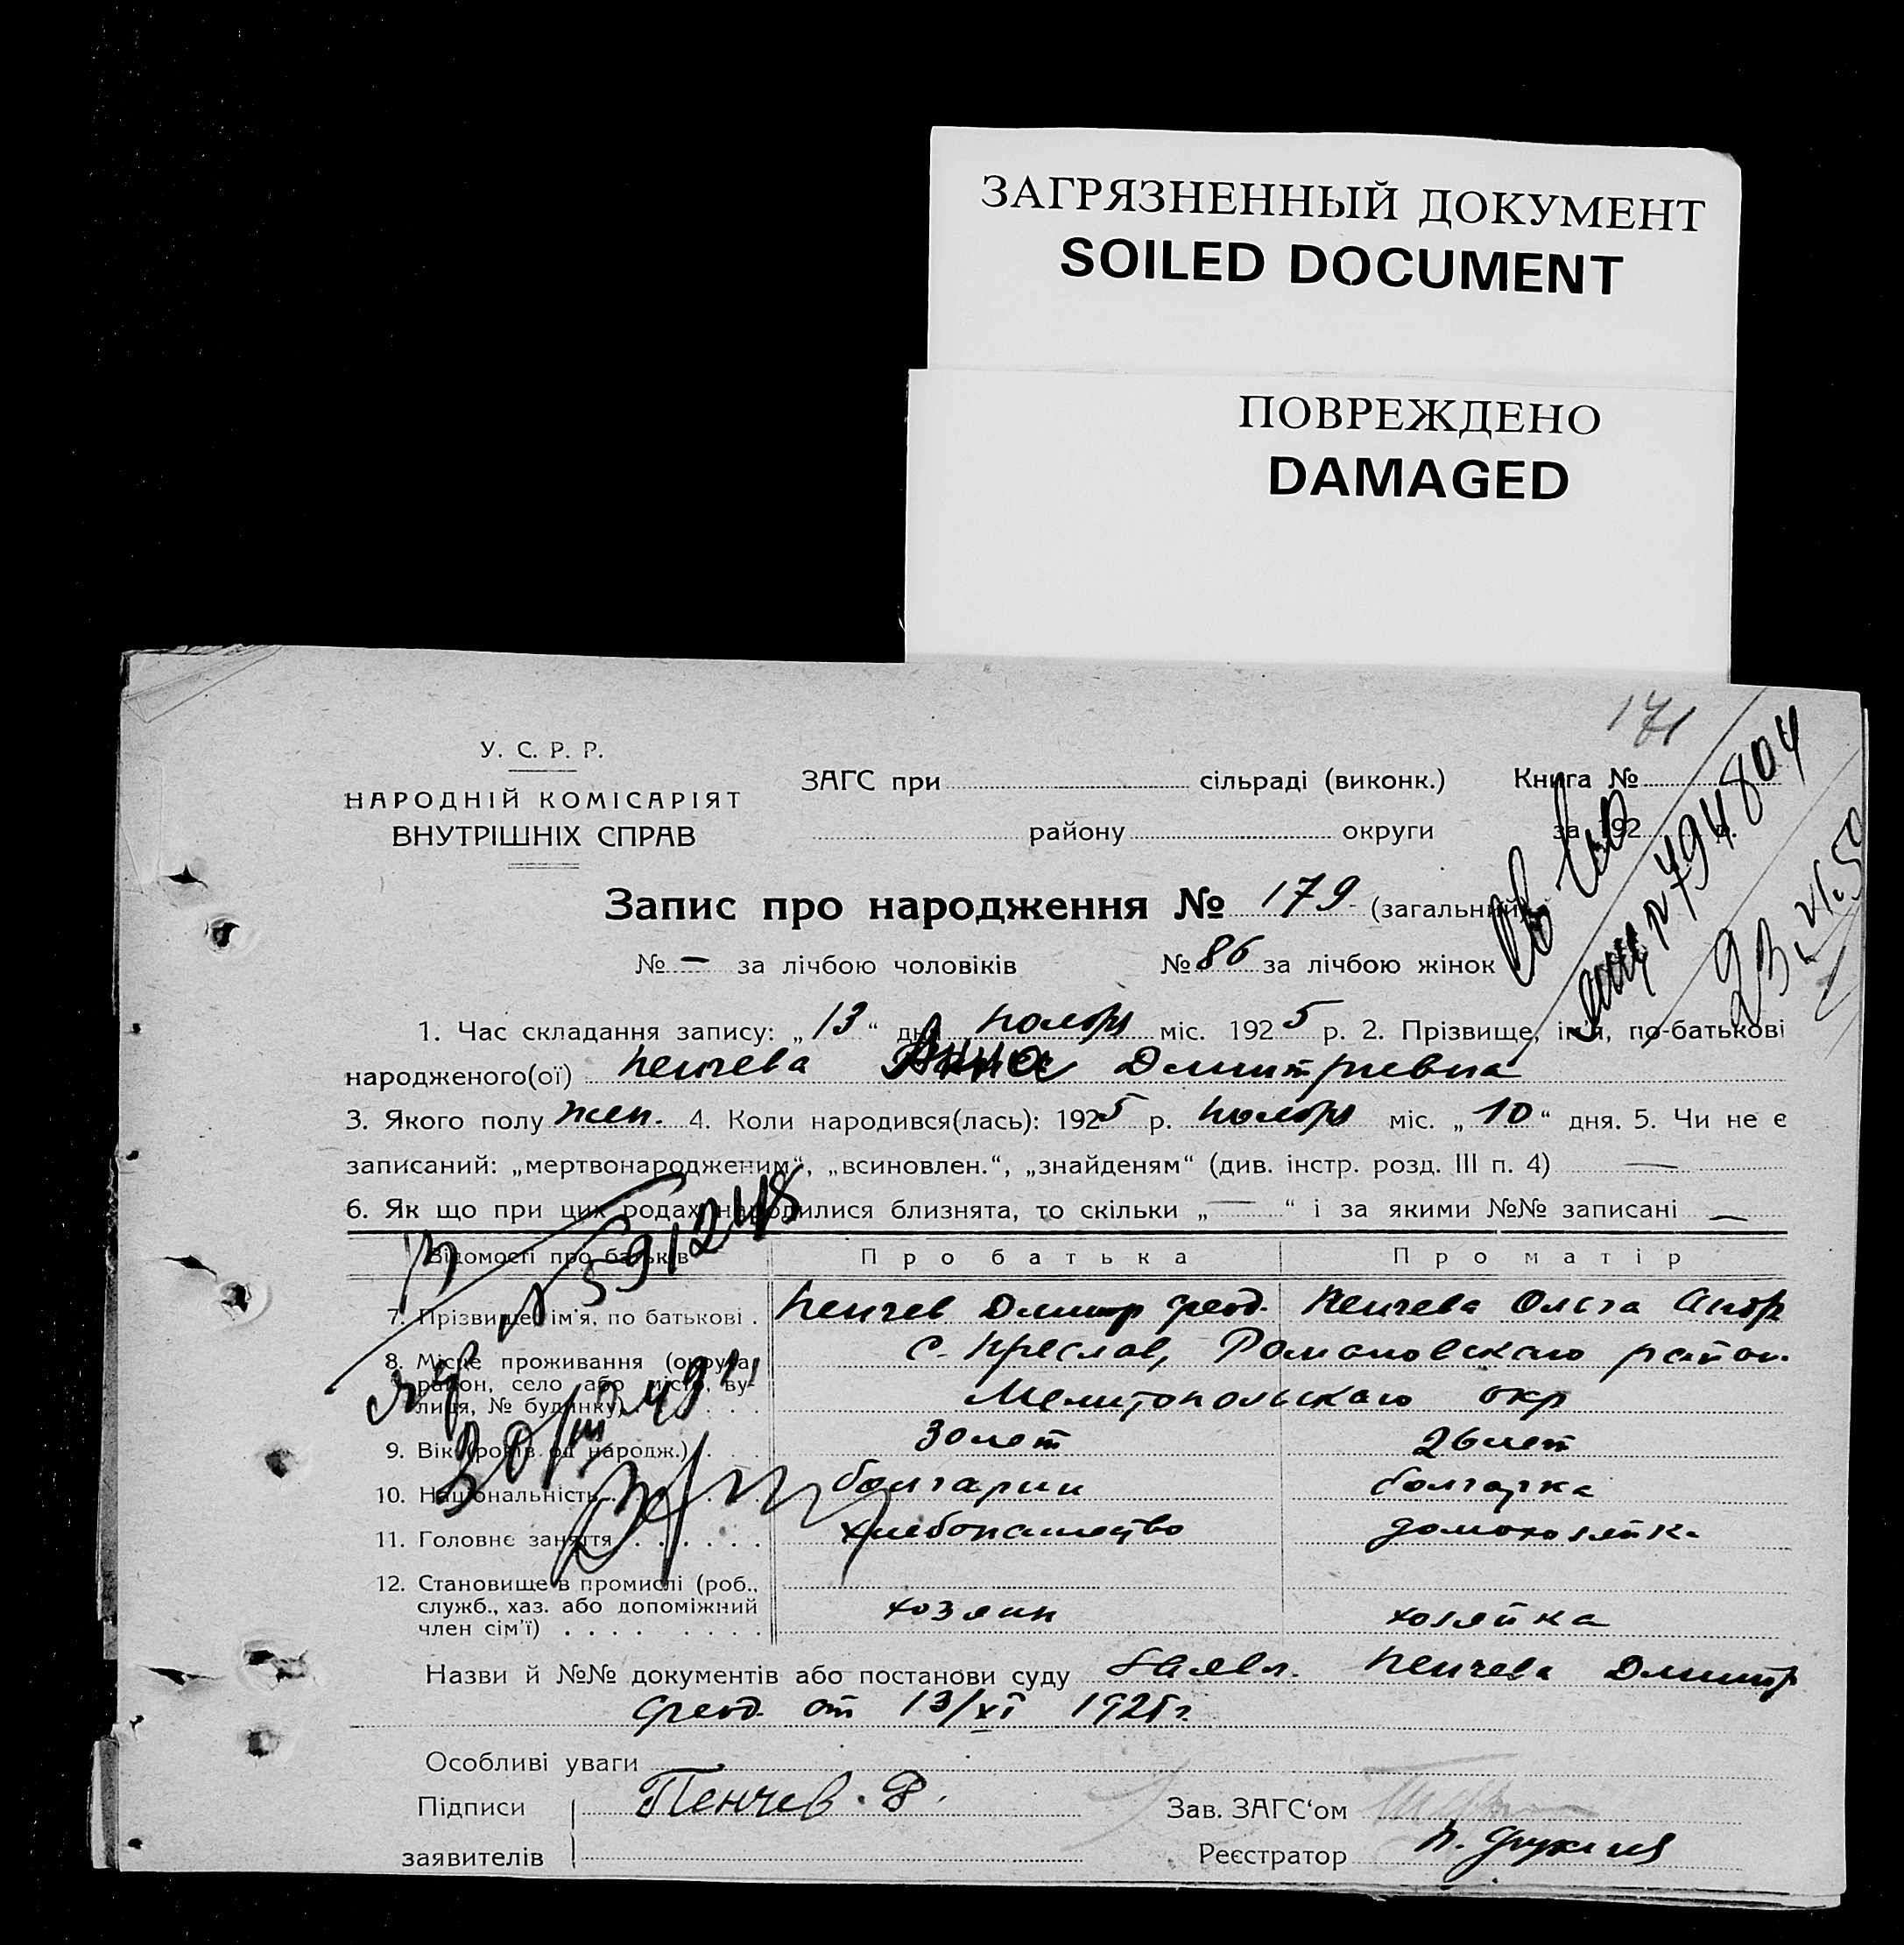 ЗАГРЯЗНЕННЫЙ ДОКУМЕНТ
SOILED DOCUMENT
ПОВРЕЖДЕНО
DAMAGED
171
У. С. Р. Р.
НАРОДНІЙ КОМІСАРІЯТ
ВНУТРІШНІХ СПРАВ
ЗАГС при сільраді (виконк.) Книга №
району округи за 192 р.
494804
Запис про народження № 179 (загальний)
№ — за лічбою чоловіків № 86 за лічбою жінок
1. Час складання запису: „ 13 “ дня ноября міс. 1925 р. 2. Прізвище, ім'я, по-батькові
народженого(ої) Пенчева Анна Дмитриевна
3. Якого полу жен. 4. Коли народився(лась): 1925 р. ноября міс. „ 10 “ дня. 5. Чи не є
записаний: „мертвонародженим“, „всиновлен.“, „знайденям“ (див. інстр. розд. III п. 4) —
6. Як що при цих родах народилися близнята, то скільки „ — “ і за якими №№ записані —
591248
Відомості про батьків Про батька Про матір
7. Прізвище, ім'я, по батькові . Пенчев Дмитр Феод. Пенчева Ольга Андр
8. Місце проживання (округа, район, село або місто, вулиця, № будинку) с. Преслав, Романовскаго район.
Мелитопольскаго окр
9. Вік (років од народж.) . 30 лет 26 лет
10. Національність болгарин болгарка
11. Головнє заняття хлебопашество домохозяйка
12. Становище в промислі (роб.,
служб., хаз. або допоміжний
член сім'ї) хозяин хозяйка
Назви й №№ документів або постанови суду Заявл. Пенчева Дмитр
Феод. от 13/XI 1925 г.
Особливі уваги
Підписи Пенчев. Зав. ЗАГС'ом
заявителів Реєстратор